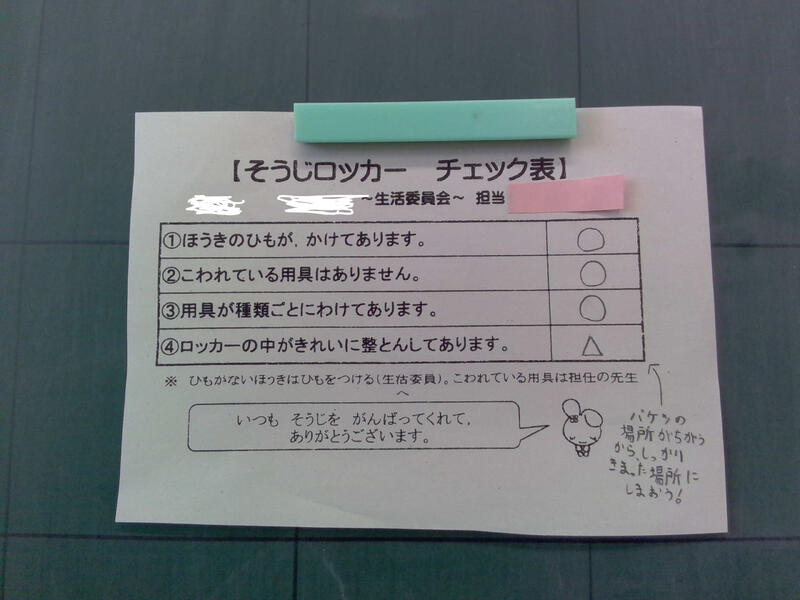 【そうじロッカー　チェック表】
～生活委員会～ 担当
①ほうきのひもが，かけてあります。 ○
②こわれている用具はありません。 ○
③用具が種類ごとにわけてあります。 ○
④ロッカーの中がきれいに整とんしてあります。 △
※ ひもがないほうきはひもをつける（生活委員）。こわれている用具は担任の先生
へ
いつも そうじを がんばってくれて，
ありがとうございます。
バケツの
場所がちがう
から、しっかり
きまった場所に
しまおう！